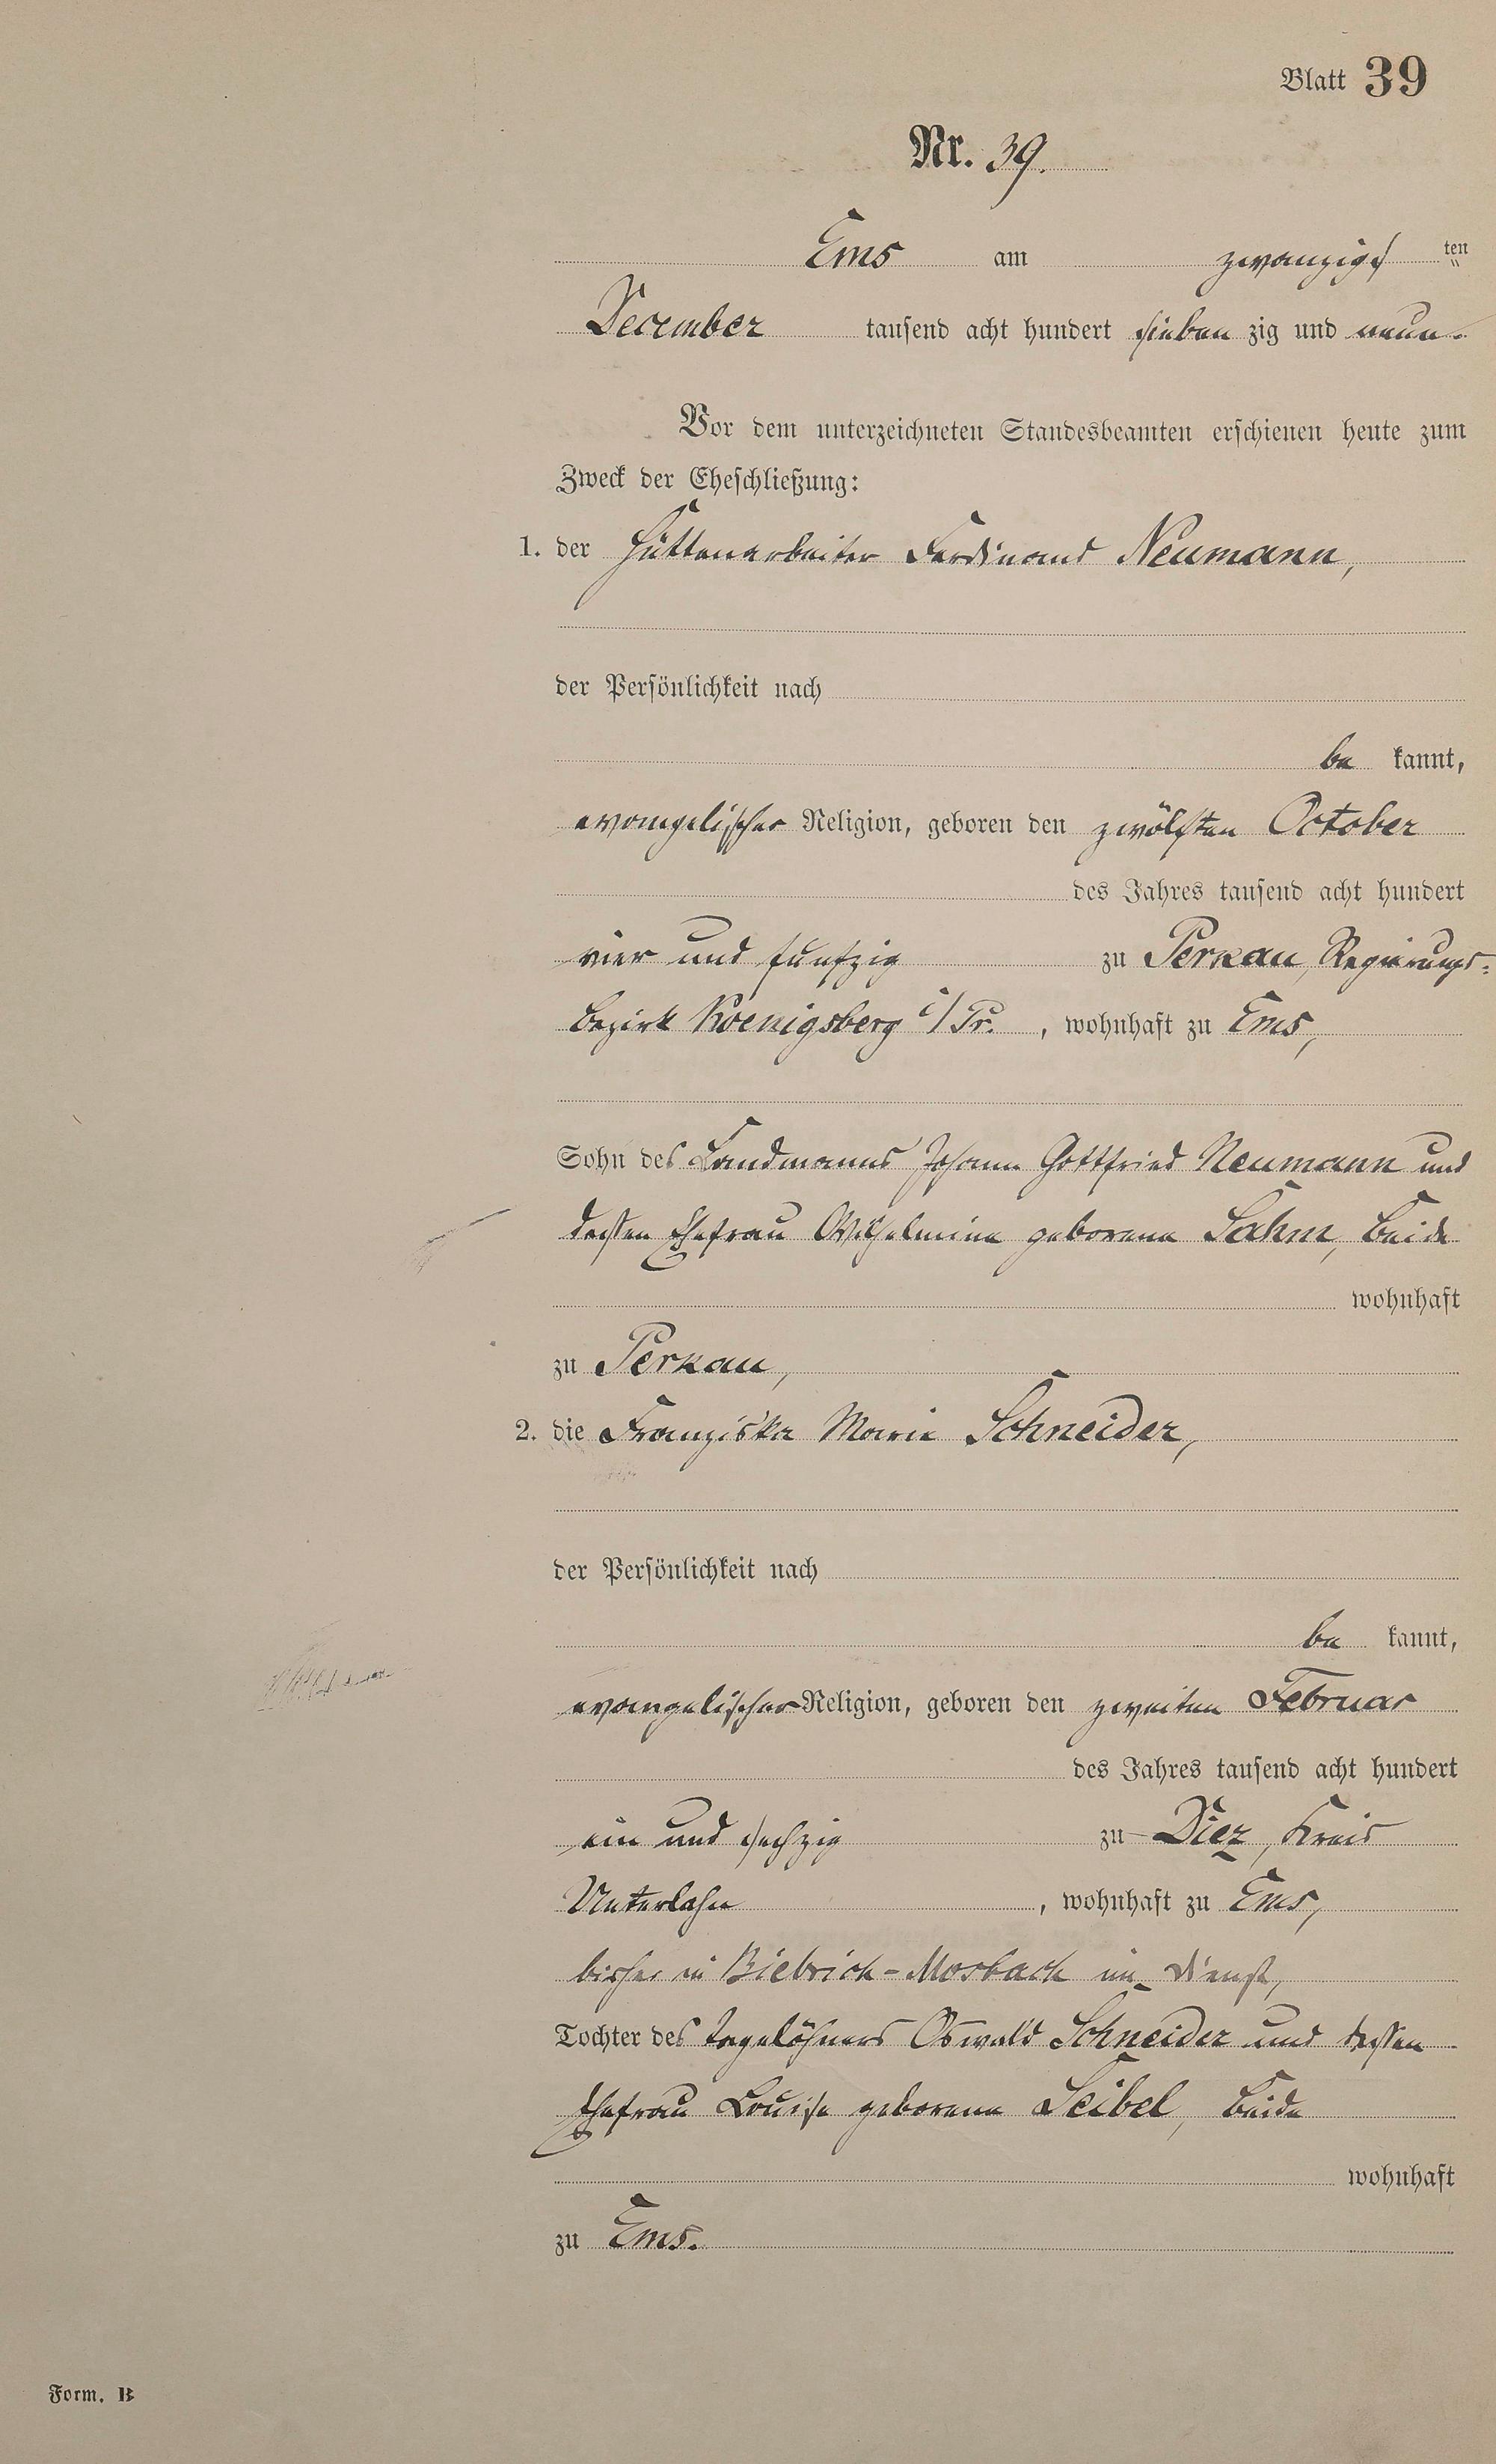 Blatt 39
Nr. 39.
Ems am zwanzigsten
December tausend acht hundert sieben zig und neun.
Vor dem unterzeichneten Standesbeamten erschienen heute zum
Zweck der Eheschließung:
1. der Hüttenarbeiter Ferdinand Neumann,
der Persönlichkeit nach
be kannt,
evangelischer Religion, geboren den zwölften October
des Jahres tausend acht hundert
vier und fünfzig zu Perkau, Regierungs=
bezirk Koenigsberg i/Pr. , wohnhaft zu Ems,
Sohn des Landmanns Johann Gottfried Neumann und
dessen Ehefrau Wilhelmine geborene Sahm, beide
wohnhaft
zu Perkau,
2. die Franziska Marie Schneider,
der Persönlichkeit nach
be kannt,
evangelischer Religion, geboren den zweiten Februar
des Jahres tausend acht hundert
ein und sechzig zu Diez, Kreis
Unterlahn , wohnhaft zu Ems,
bisher in Biebrich-Mosbach im Dienst,
Tochter des Tagelöhners Oswald Schneider und dessen
Ehefrau Louise geborene Seibel, beide
wohnhaft
zu Ems.
Form. B